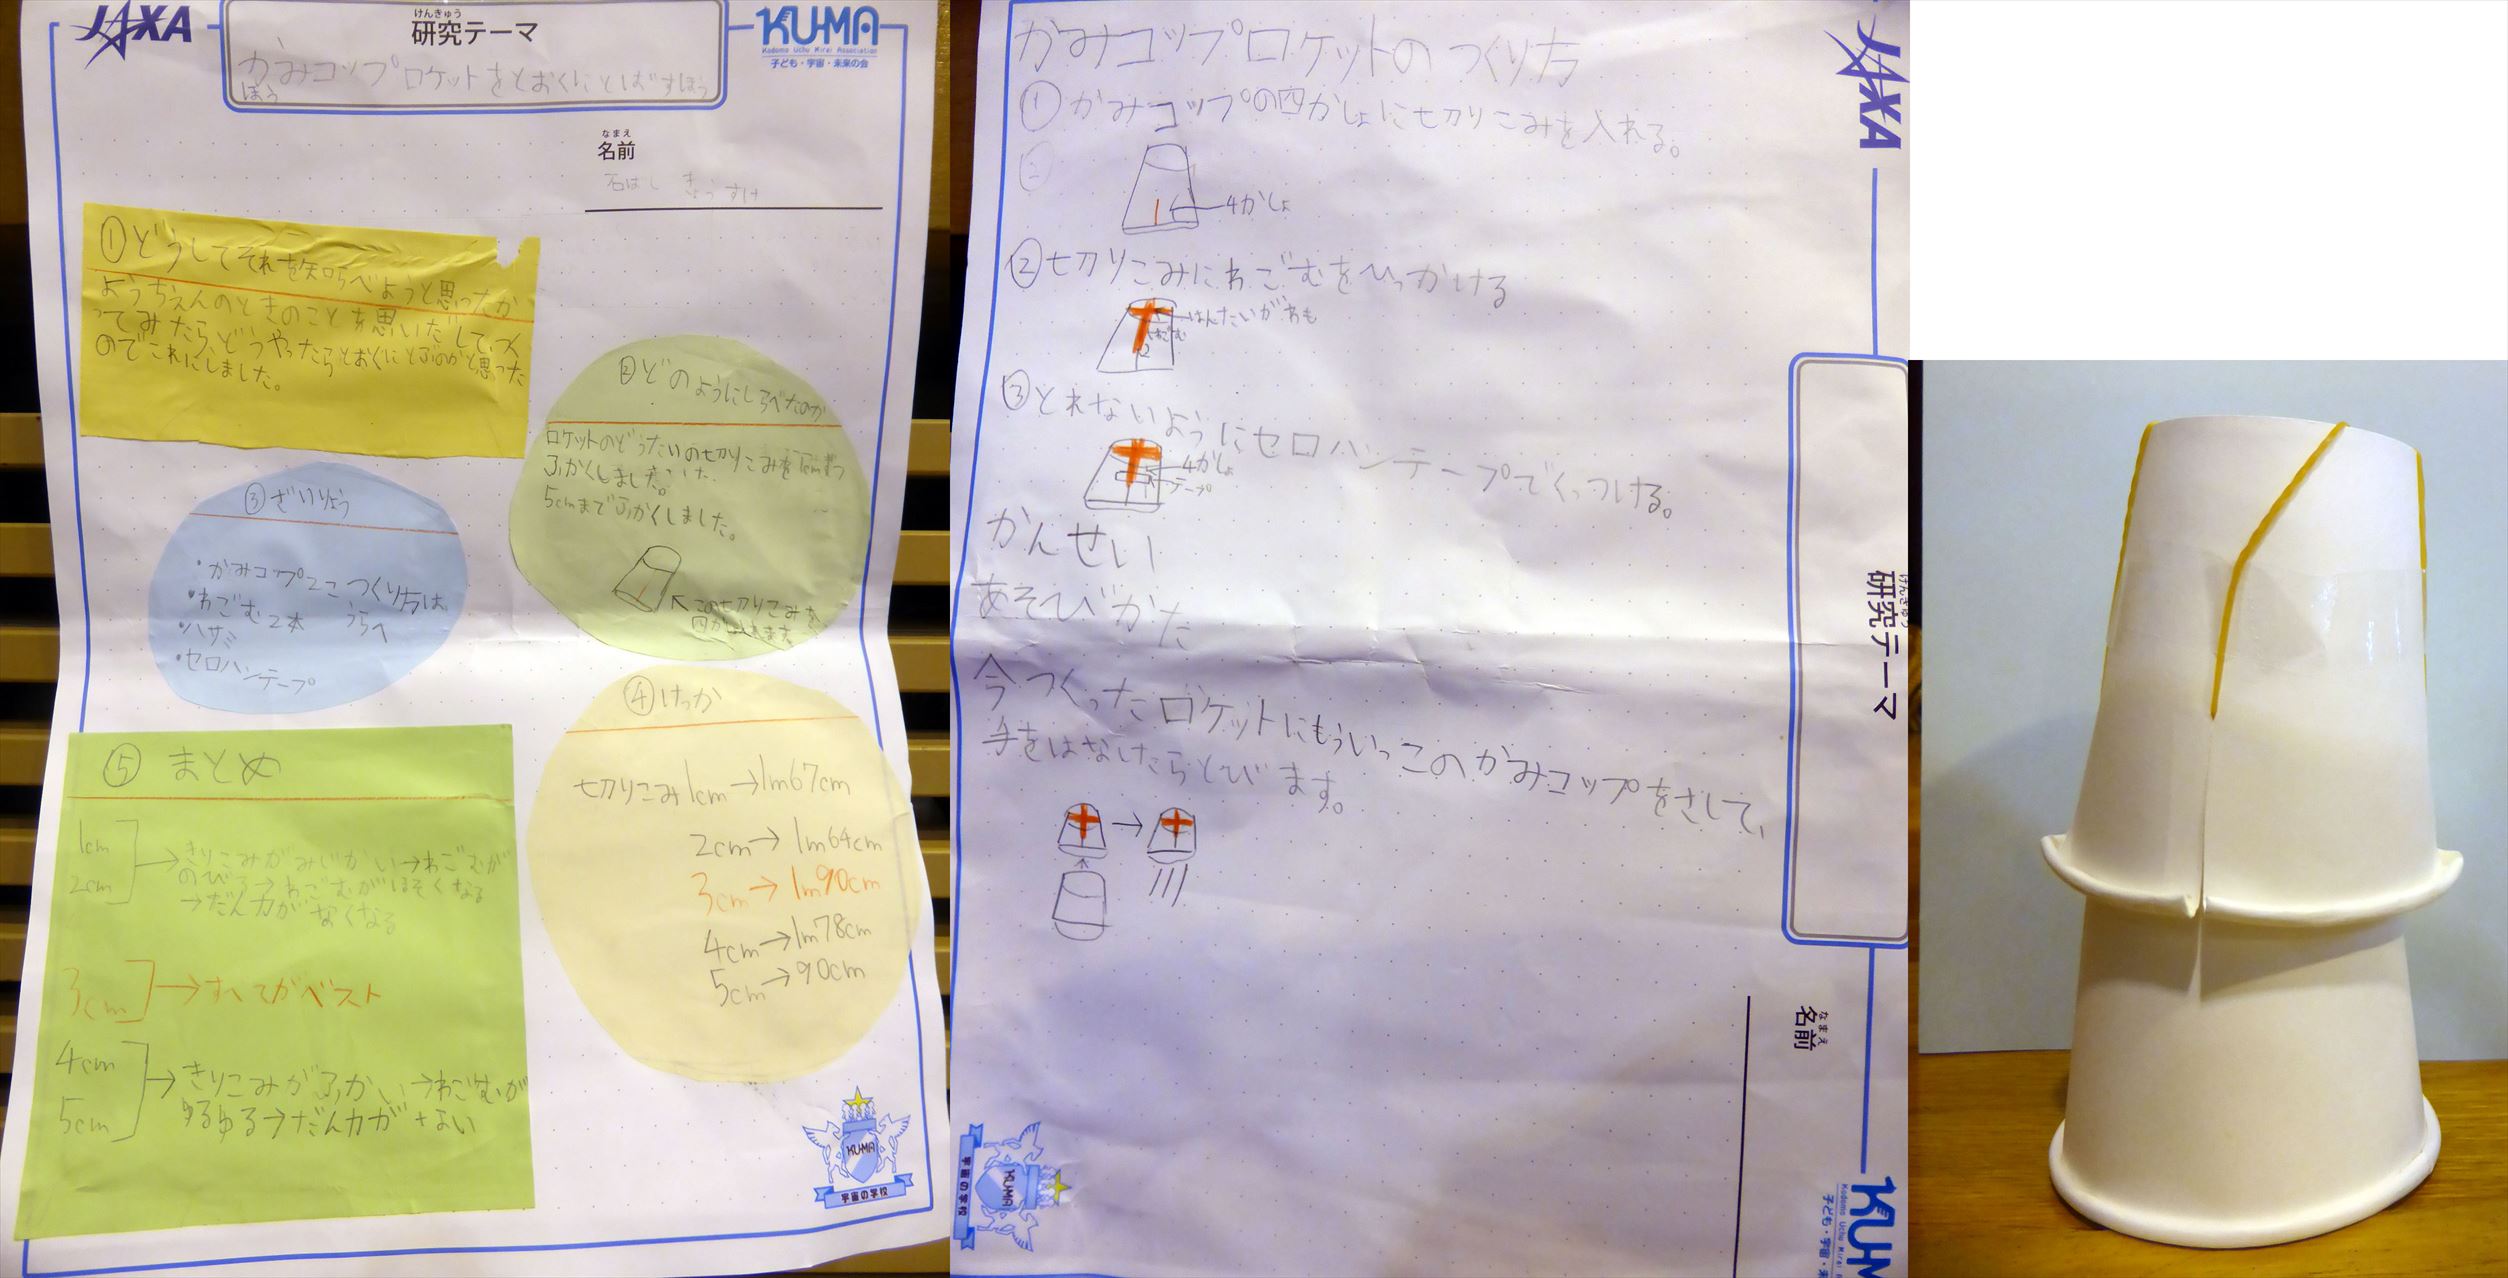 JAXA
けんきゅう
研究テーマ
KU-MA
Kodomo Uchu Mirai Association
子ども・宇宙・未来の会
かみコップロケットをとおくにとばすほう
ほう
なまえ
名前
石はし きょうすけ
①どうしてそれを知らべようと思ったか
ようちえんのときのことを思いだして、つく
ってみたら、どうやったらとおくにとぶのかと思った
のでこれにしました。
②どのようにしらべたのか
ロケットのどうたいの切りこみを1cmずつ
ふかくしました。
5cmまでふかくしました。
この切りこみを
四か入れます
③ざいりょう
・かみコップ2こ つくり方は、
・わごむ2本 うらへ
・ハサミ
・セロハンテープ
④けっか
切りこみ1cm→1m67cm
2cm→1m64cm
3cm→1m90cm
4cm→1m78cm
5cm→90cm
⑤まとめ
1cm
2cm
→きりこみがみじかい→わごむが
のびる→わごむがほそくなる
→だん力がなくなる
3cm→すべてがベスト
4cm
5cm
→きりこみがふかい→わごむが
ゆるゆる→だん力がない
KUMA
宇宙の学校
かみコップロケットのつくり方
①かみコップの四かしょに切りこみを入れる。
4かしょ
②切りこみにわごむをひっかける
はんたいがわも
わごむ
③とれないようにセロハンテープでくっつける。
4かしょ
テープ
かんせい
あそびかた
今つくったロケットにもういっこのかみコップをさして、
手をはなしたらとびます。
JAXA
けんきゅう
研究テーマ
なまえ
名前
KU-M
Kodomo Uchu Mirai
子ども・宇宙・未
KUMA
宇宙の学校